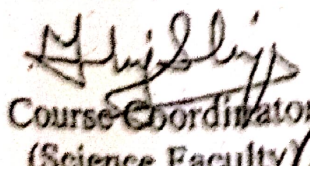 Course Coordinator
(Science Faculty)